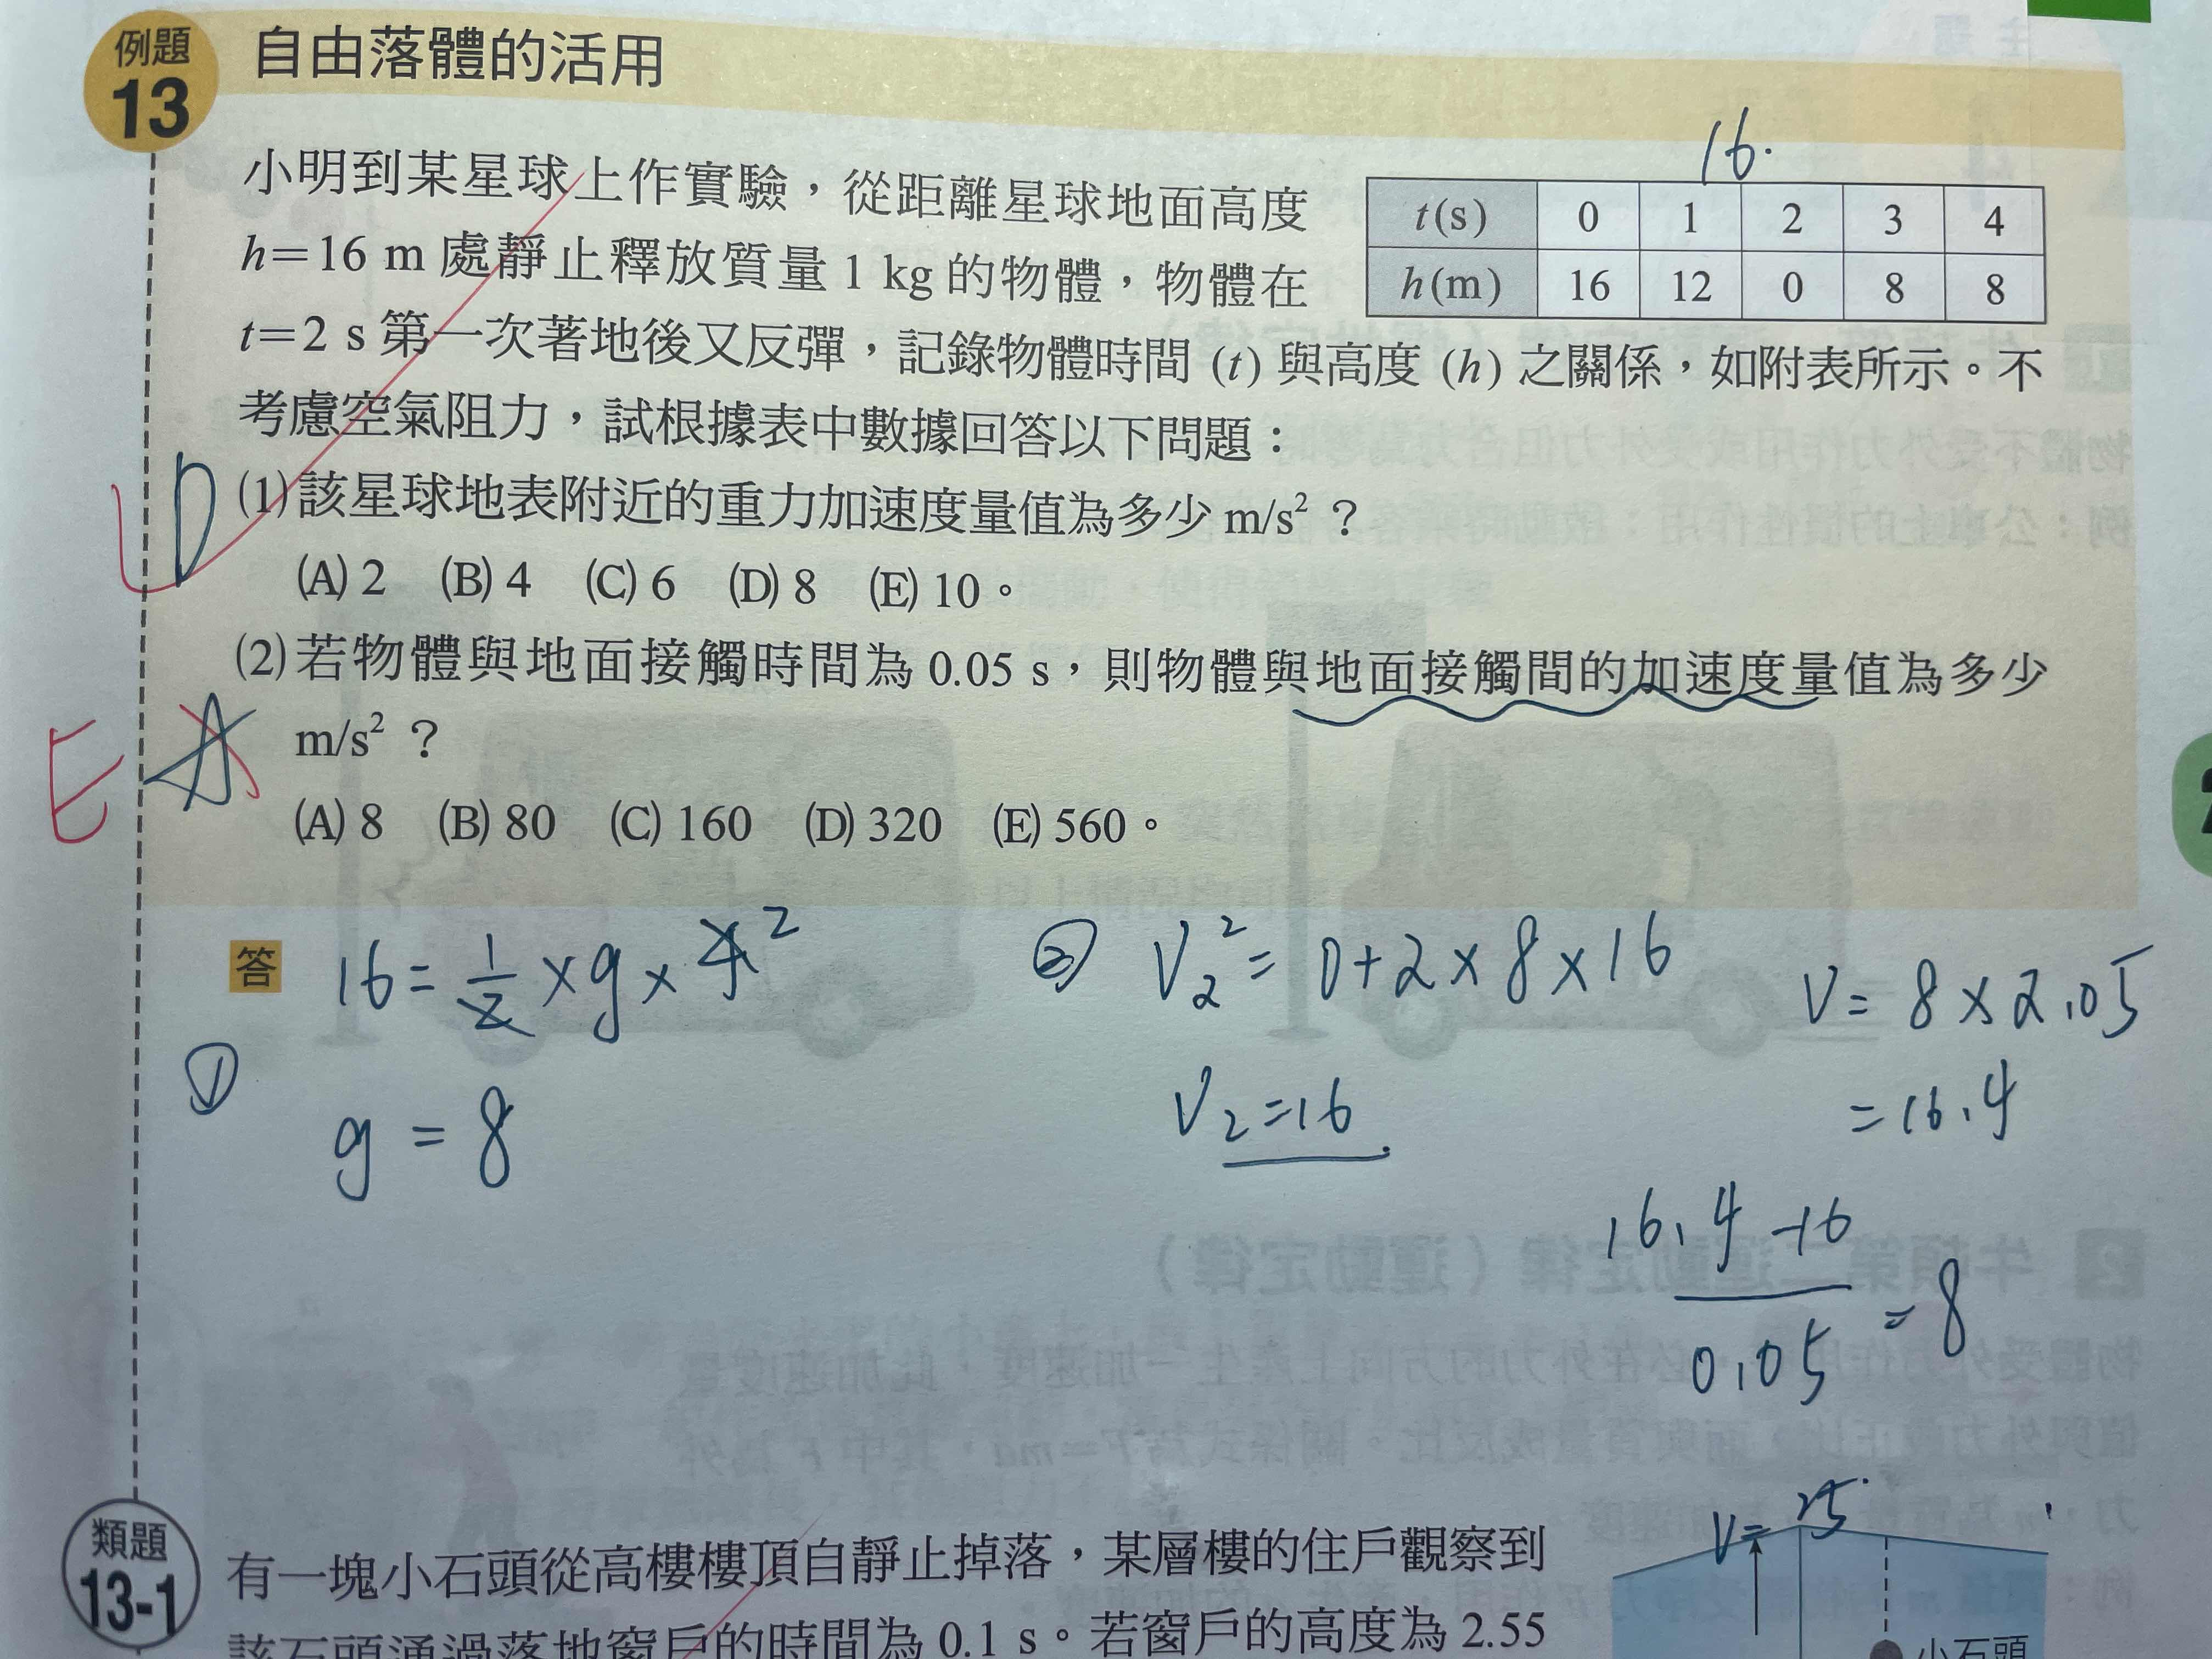 例題
13
自由落體的活用
16.
小明到某星球上作實驗，從距離星球地面高度
h=16 m 處靜止釋放質量 1 kg 的物體，物體在
t=2 s 第一次著地後又反彈，記錄物體時間 (t) 與高度 (h) 之關係，如附表所示。不
考慮空氣阻力，試根據表中數據回答以下問題：
t(s) 0 1 2 3 4
h(m) 16 12 0 8 8
D
(1)該星球地表附近的重力加速度量值為多少 m/s² ？
(A) 2 (B) 4 (C) 6 (D) 8 (E) 10。
(2)若物體與地面接觸時間為 0.05 s，則物體與地面接觸間的加速度量值為多少
E A
m/s² ？
(A) 8 (B) 80 (C) 160 (D) 320 (E) 560。
答
16=1/2×g×4 2
①
g=8
② V₂²=0+2×8×16
V₂=16
V=8×2.05
=16.4
16.4-16
0.05
=8
V=25
類題
13-1
有一塊小石頭從高樓樓頂自靜止掉落，某層樓的住戶觀察到
該石頭通過落地窗戶的時間為 0.1 s。若窗戶的高度為 2.55
小石頭